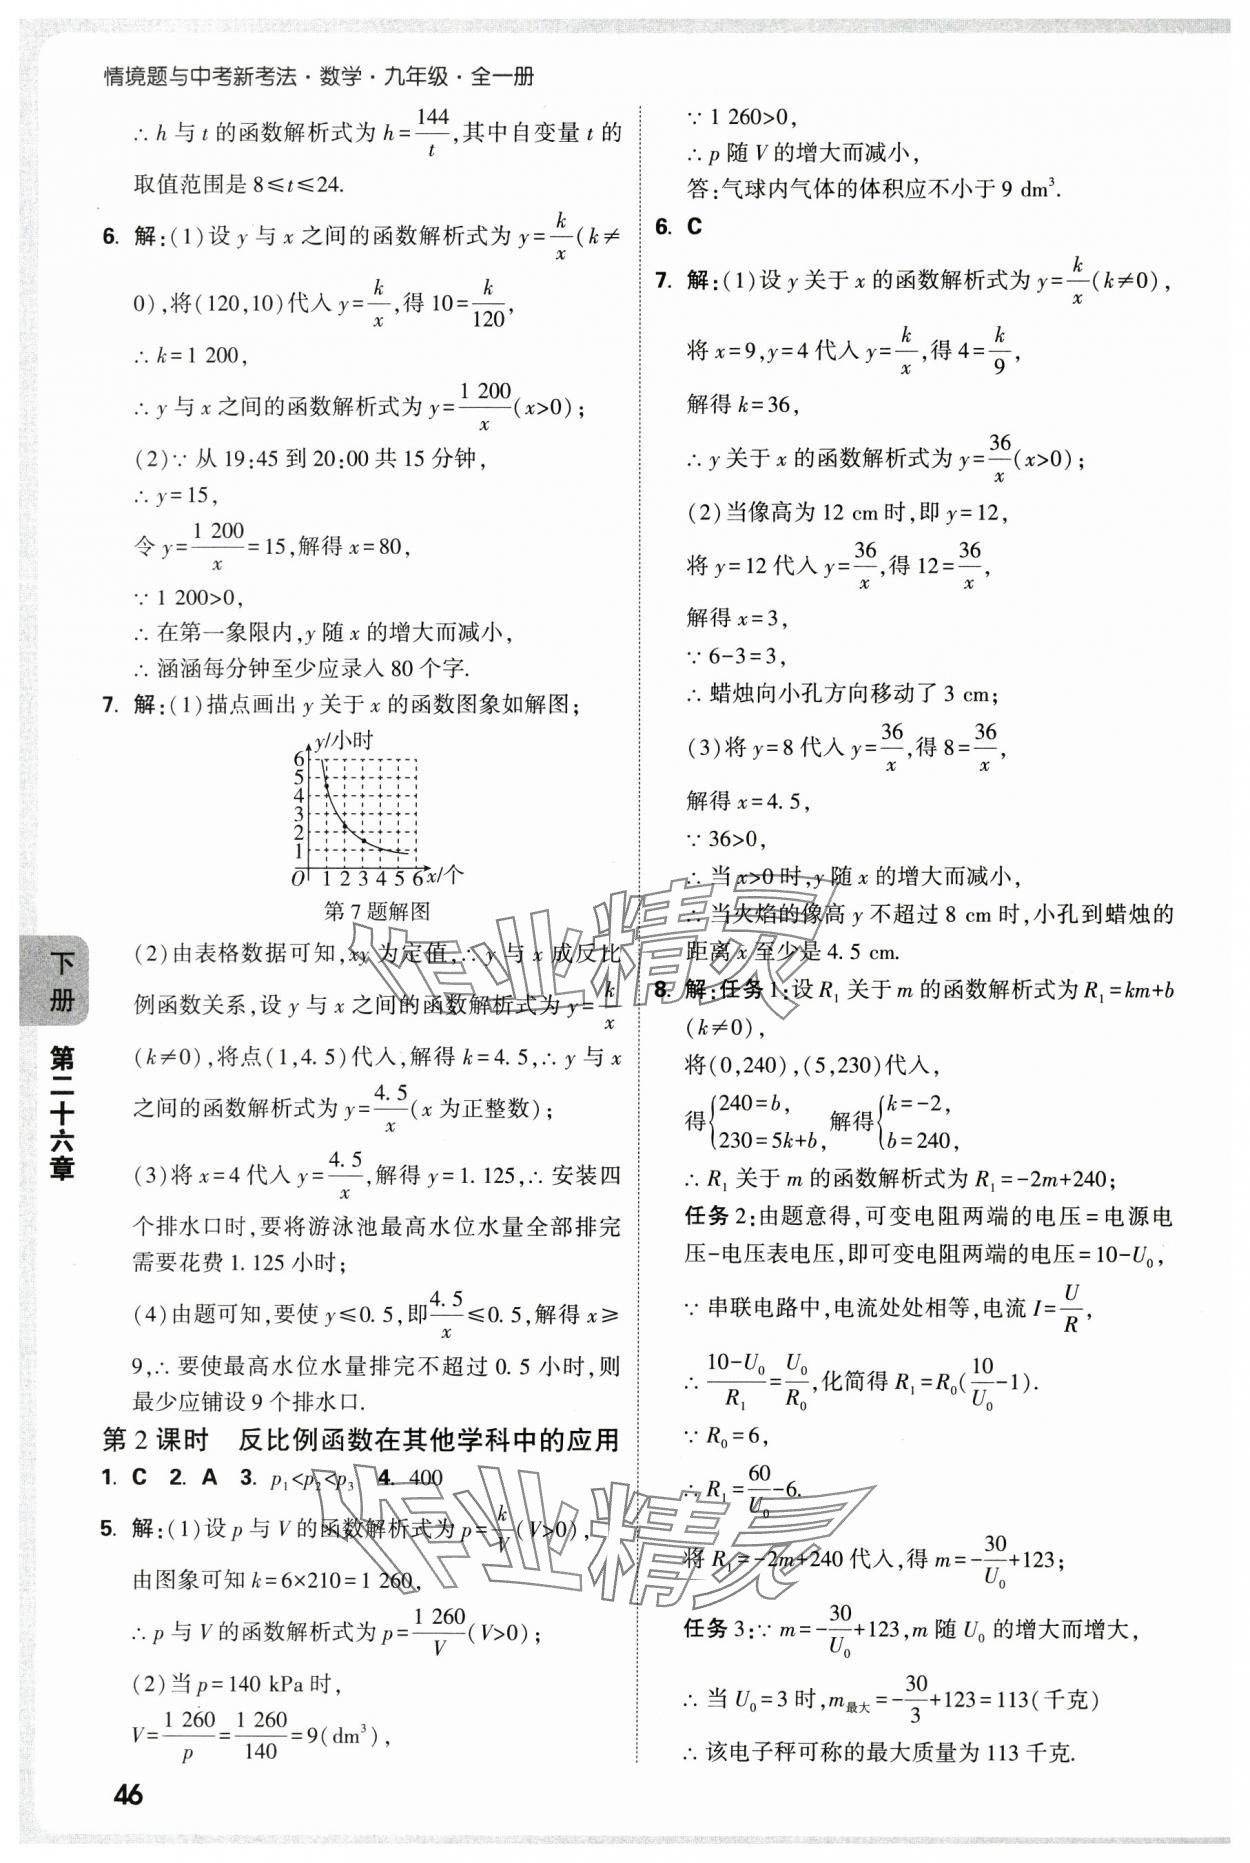 情境题与中考新考法·数学·九年级·全一册
∴ h 与 t 的函数解析式为 h=144/t,其中自变量 t 的
取值范围是 8≤t≤24.
6. 解:(1)设 y 与 x 之间的函数解析式为 y=k/x(k≠
0),将(120,10)代入 y=k/x,得 10=k/120,
∴ k=1 200,
∴ y 与 x 之间的函数解析式为 y=1 200/x(x>0);
(2)∵ 从 19:45 到 20:00 共 15 分钟,
∴ y=15,
令 y=1 200/x=15,解得 x=80,
∵ 1 200>0,
∴ 在第一象限内,y 随 x 的增大而减小,
∴ 涵涵每分钟至少应录入 80 个字.
7. 解:(1)描点画出 y 关于 x 的函数图象如解图;
y/小时
6
5
4
3
2
1
O 1 2 3 4 5 6 x/个
第 7 题解图
(2)由表格数据可知,xy 为定值,∴ y 与 x 成反比
例函数关系,设 y 与 x 之间的函数解析式为 y=k/x
(k≠0),将点(1,4.5)代入,解得 k=4.5,∴ y 与 x
之间的函数解析式为 y=4.5/x(x 为正整数);
(3)将 x=4 代入 y=4.5/x,解得 y=1.125,∴ 安装四
个排水口时,要将游泳池最高水位水量全部排完
需要花费 1.125 小时;
(4)由题可知,要使 y≤0.5,即4.5/x≤0.5,解得 x≥
9,∴ 要使最高水位水量排完不超过 0.5 小时,则
最少应铺设 9 个排水口.
第 2 课时 反比例函数在其他学科中的应用
1. C 2. A 3. p₁<p₂<p₃ 4. 400
5. 解:(1)设 p 与 V 的函数解析式为 p=k/V(V>0),
由图象可知 k=6×210=1 260,
∴ p 与 V 的函数解析式为 p=1 260/V(V>0);
(2)当 p=140 kPa 时,
V=1 260/p=1 260/140=9(dm³),
∵ 1 260>0,
∴ p 随 V 的增大而减小,
答:气球内气体的体积应不小于 9 dm³.
6. C
7. 解:(1)设 y 关于 x 的函数解析式为 y=k/x(k≠0),
将 x=9,y=4 代入 y=k/x,得 4=k/9,
解得 k=36,
∴ y 关于 x 的函数解析式为 y=36/x(x>0);
(2)当像高为 12 cm 时,即 y=12,
将 y=12 代入 y=36/x,得 12=36/x,
解得 x=3,
∵ 6-3=3,
∴ 蜡烛向小孔方向移动了 3 cm;
(3)将 y=8 代入 y=36/x,得 8=36/x,
解得 x=4.5,
∵ 36>0,
∴ 当 x>0 时,y 随 x 的增大而减小,
∴ 当火焰的像高 y 不超过 8 cm 时,小孔到蜡烛的
距离 x 至少是 4.5 cm.
8. 解:任务 1:设 R₁ 关于 m 的函数解析式为 R₁=km+b
(k≠0),
将(0,240),(5,230)代入,
得{240=b, 230=5k+b, 解得{k=-2, b=240,
∴ R₁ 关于 m 的函数解析式为 R₁=-2m+240;
任务 2:由题意得,可变电阻两端的电压=电源电
压-电压表电压,即可变电阻两端的电压=10-U₀,
∵ 串联电路中,电流处处相等,电流 I=U/R,
∴ (10-U₀)/R₁=U₀/R₀,化简得 R₁=R₀(10/U₀-1).
∵ R₀=6,
∴ R₁=60/U₀-6.
将 R₁=-2m+240 代入,得 m=-30/U₀+123;
任务 3:∵ m=-30/U₀+123,m 随 U₀ 的增大而增大,
∴ 当 U₀=3 时,m最大=-30/3+123=113(千克)
∴ 该电子秤可称的最大质量为 113 千克.
下册
第二十六章
46
作业精灵
作业精灵